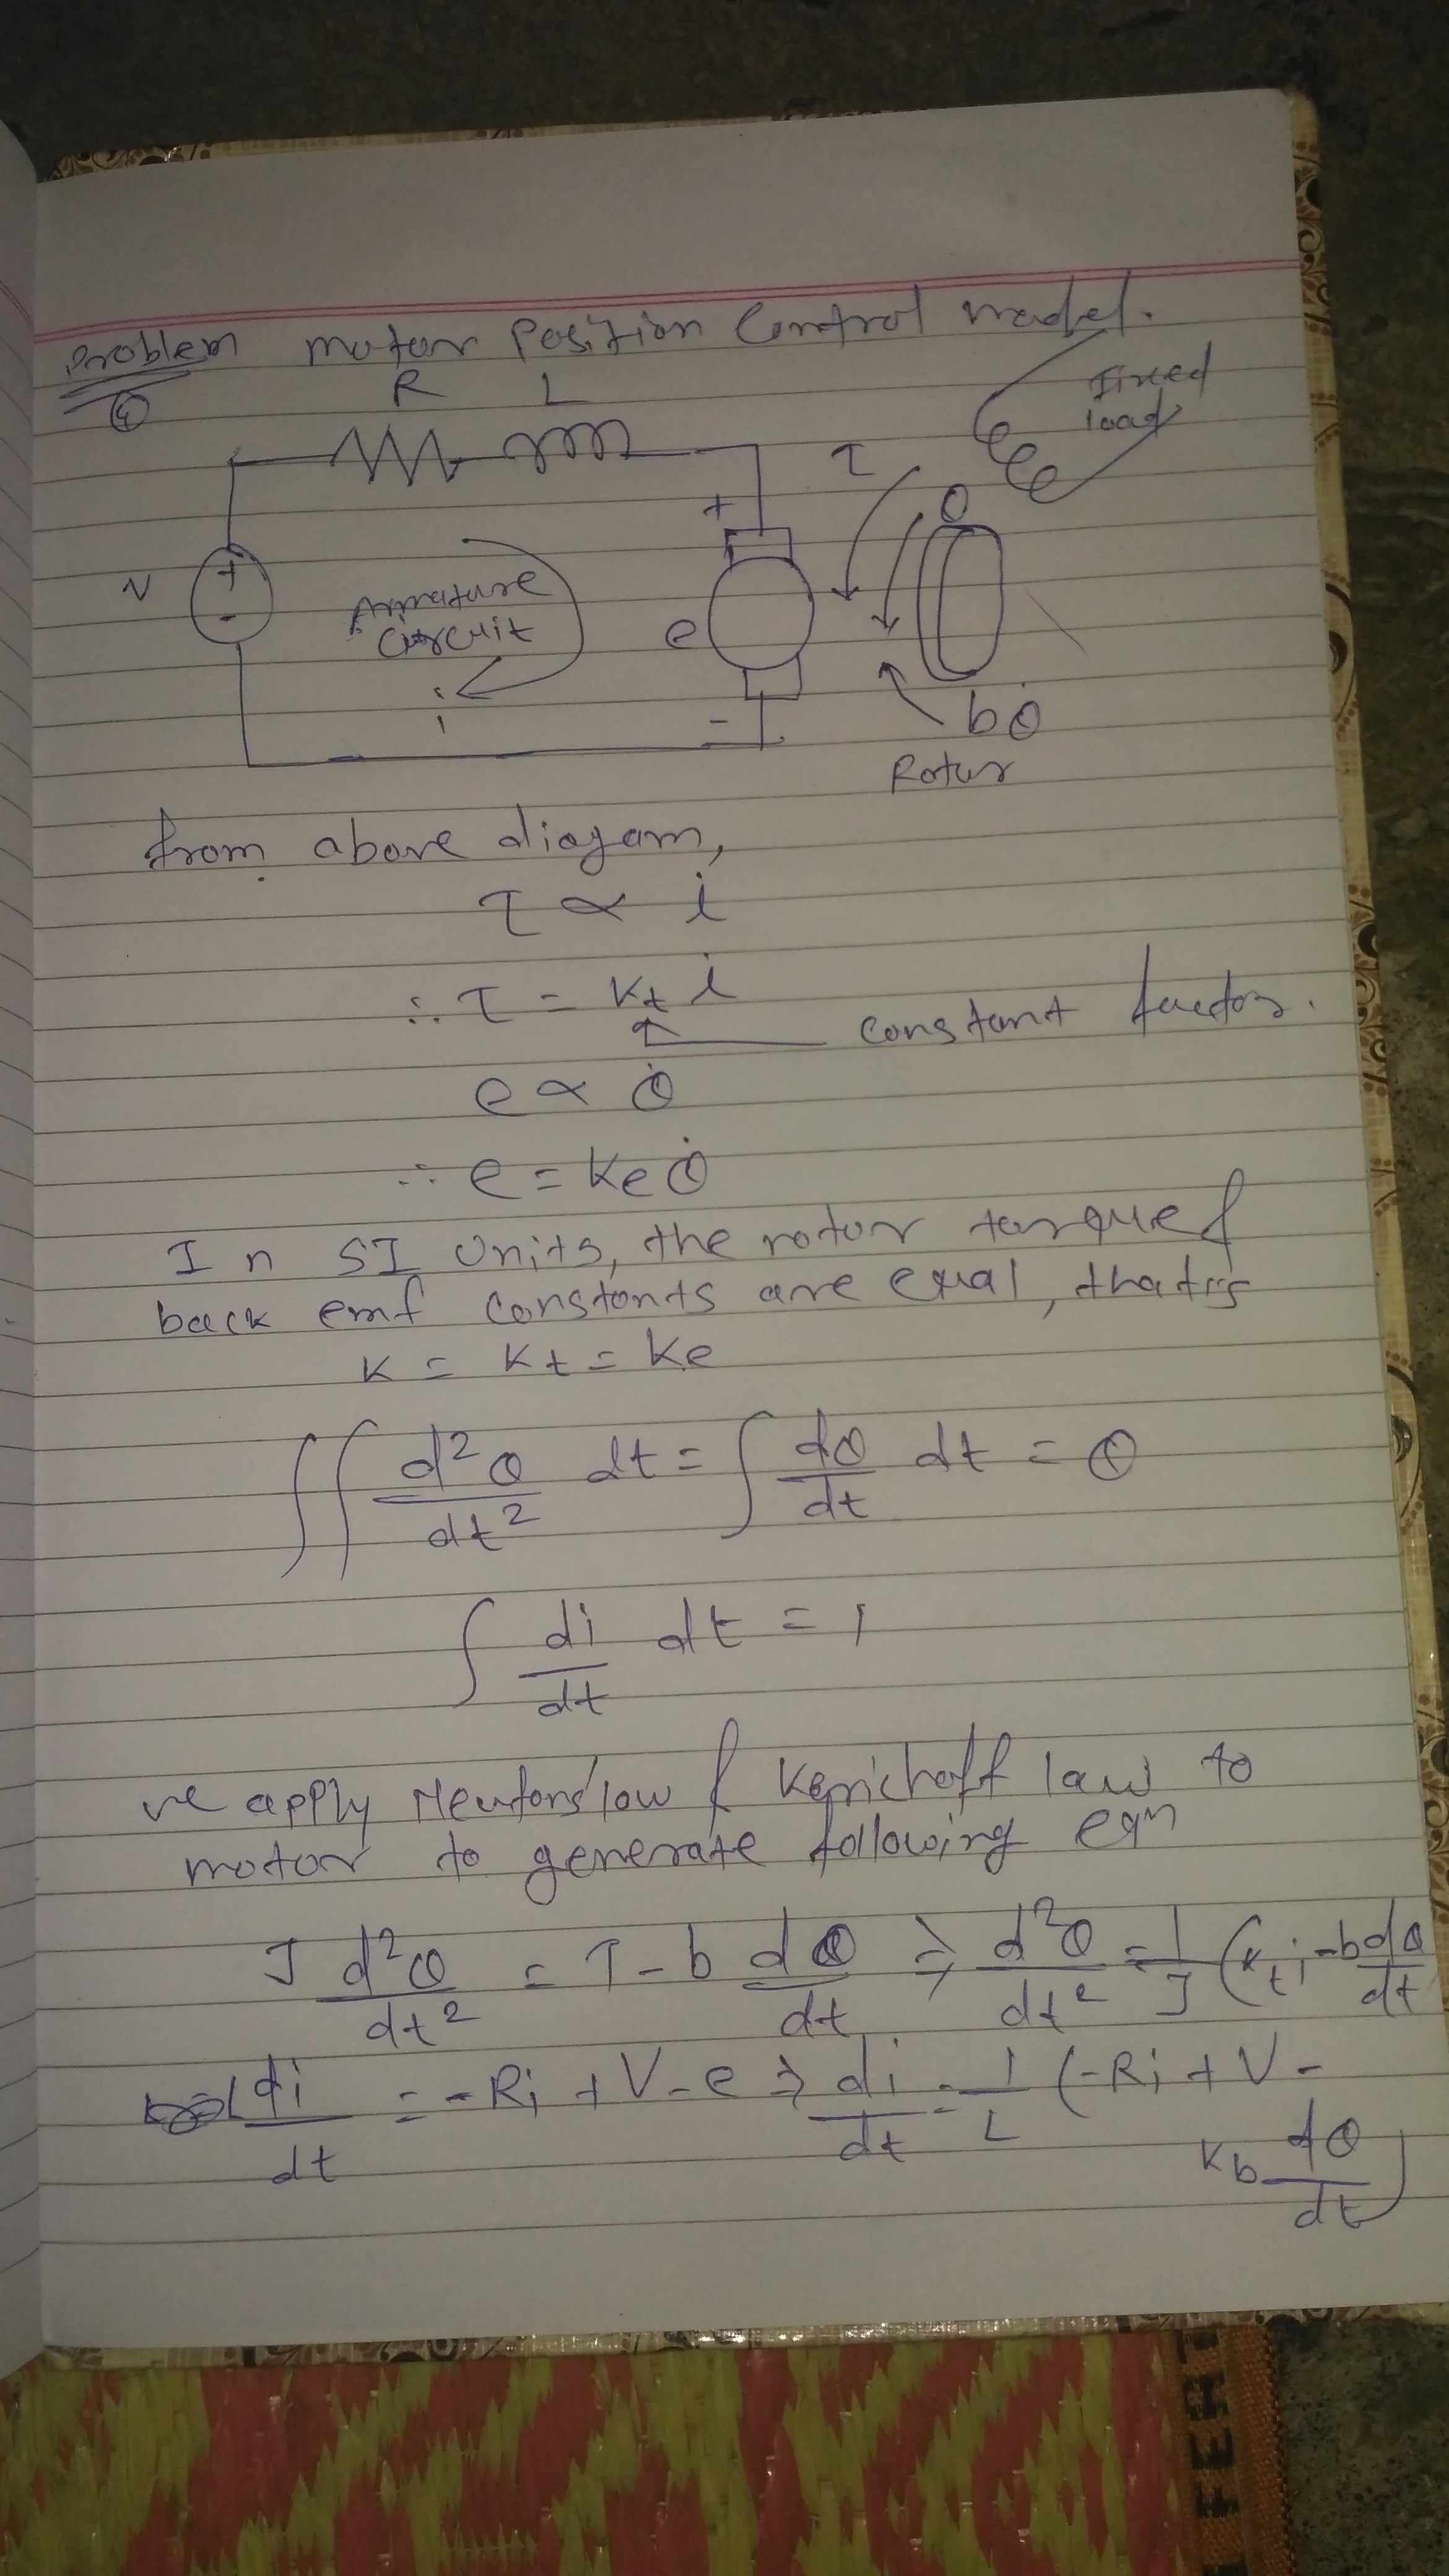 Problem motor Position Control model.
④
R L
fixed
load
τ
θ
+
V
+
-
Armature
circuit
e
i
-
bθ̇
Rotur
from above diagam,
τ ∝ i
∴ τ = Kt i
constant factor.
e ∝ θ̇
∴ e = Ke θ̇
In SI Units, the rotor torque &
back emf constants are equal, that is
K = Kt = Ke
∫∫ d²θ/dt² dt = ∫ dθ/dt dt = θ
∫ di/dt dt = i
we apply Newtons law & Kerichoff law to
motor to generate following eqn
J d²θ/dt² = T - b dθ/dt ⇒ d²θ/dt² = 1/J (Kt i - b dθ/dt
L di/dt = -Ri + V - e ⇒ di/dt = 1/L (-Ri + V -
Kb dθ/dt)
FEAT